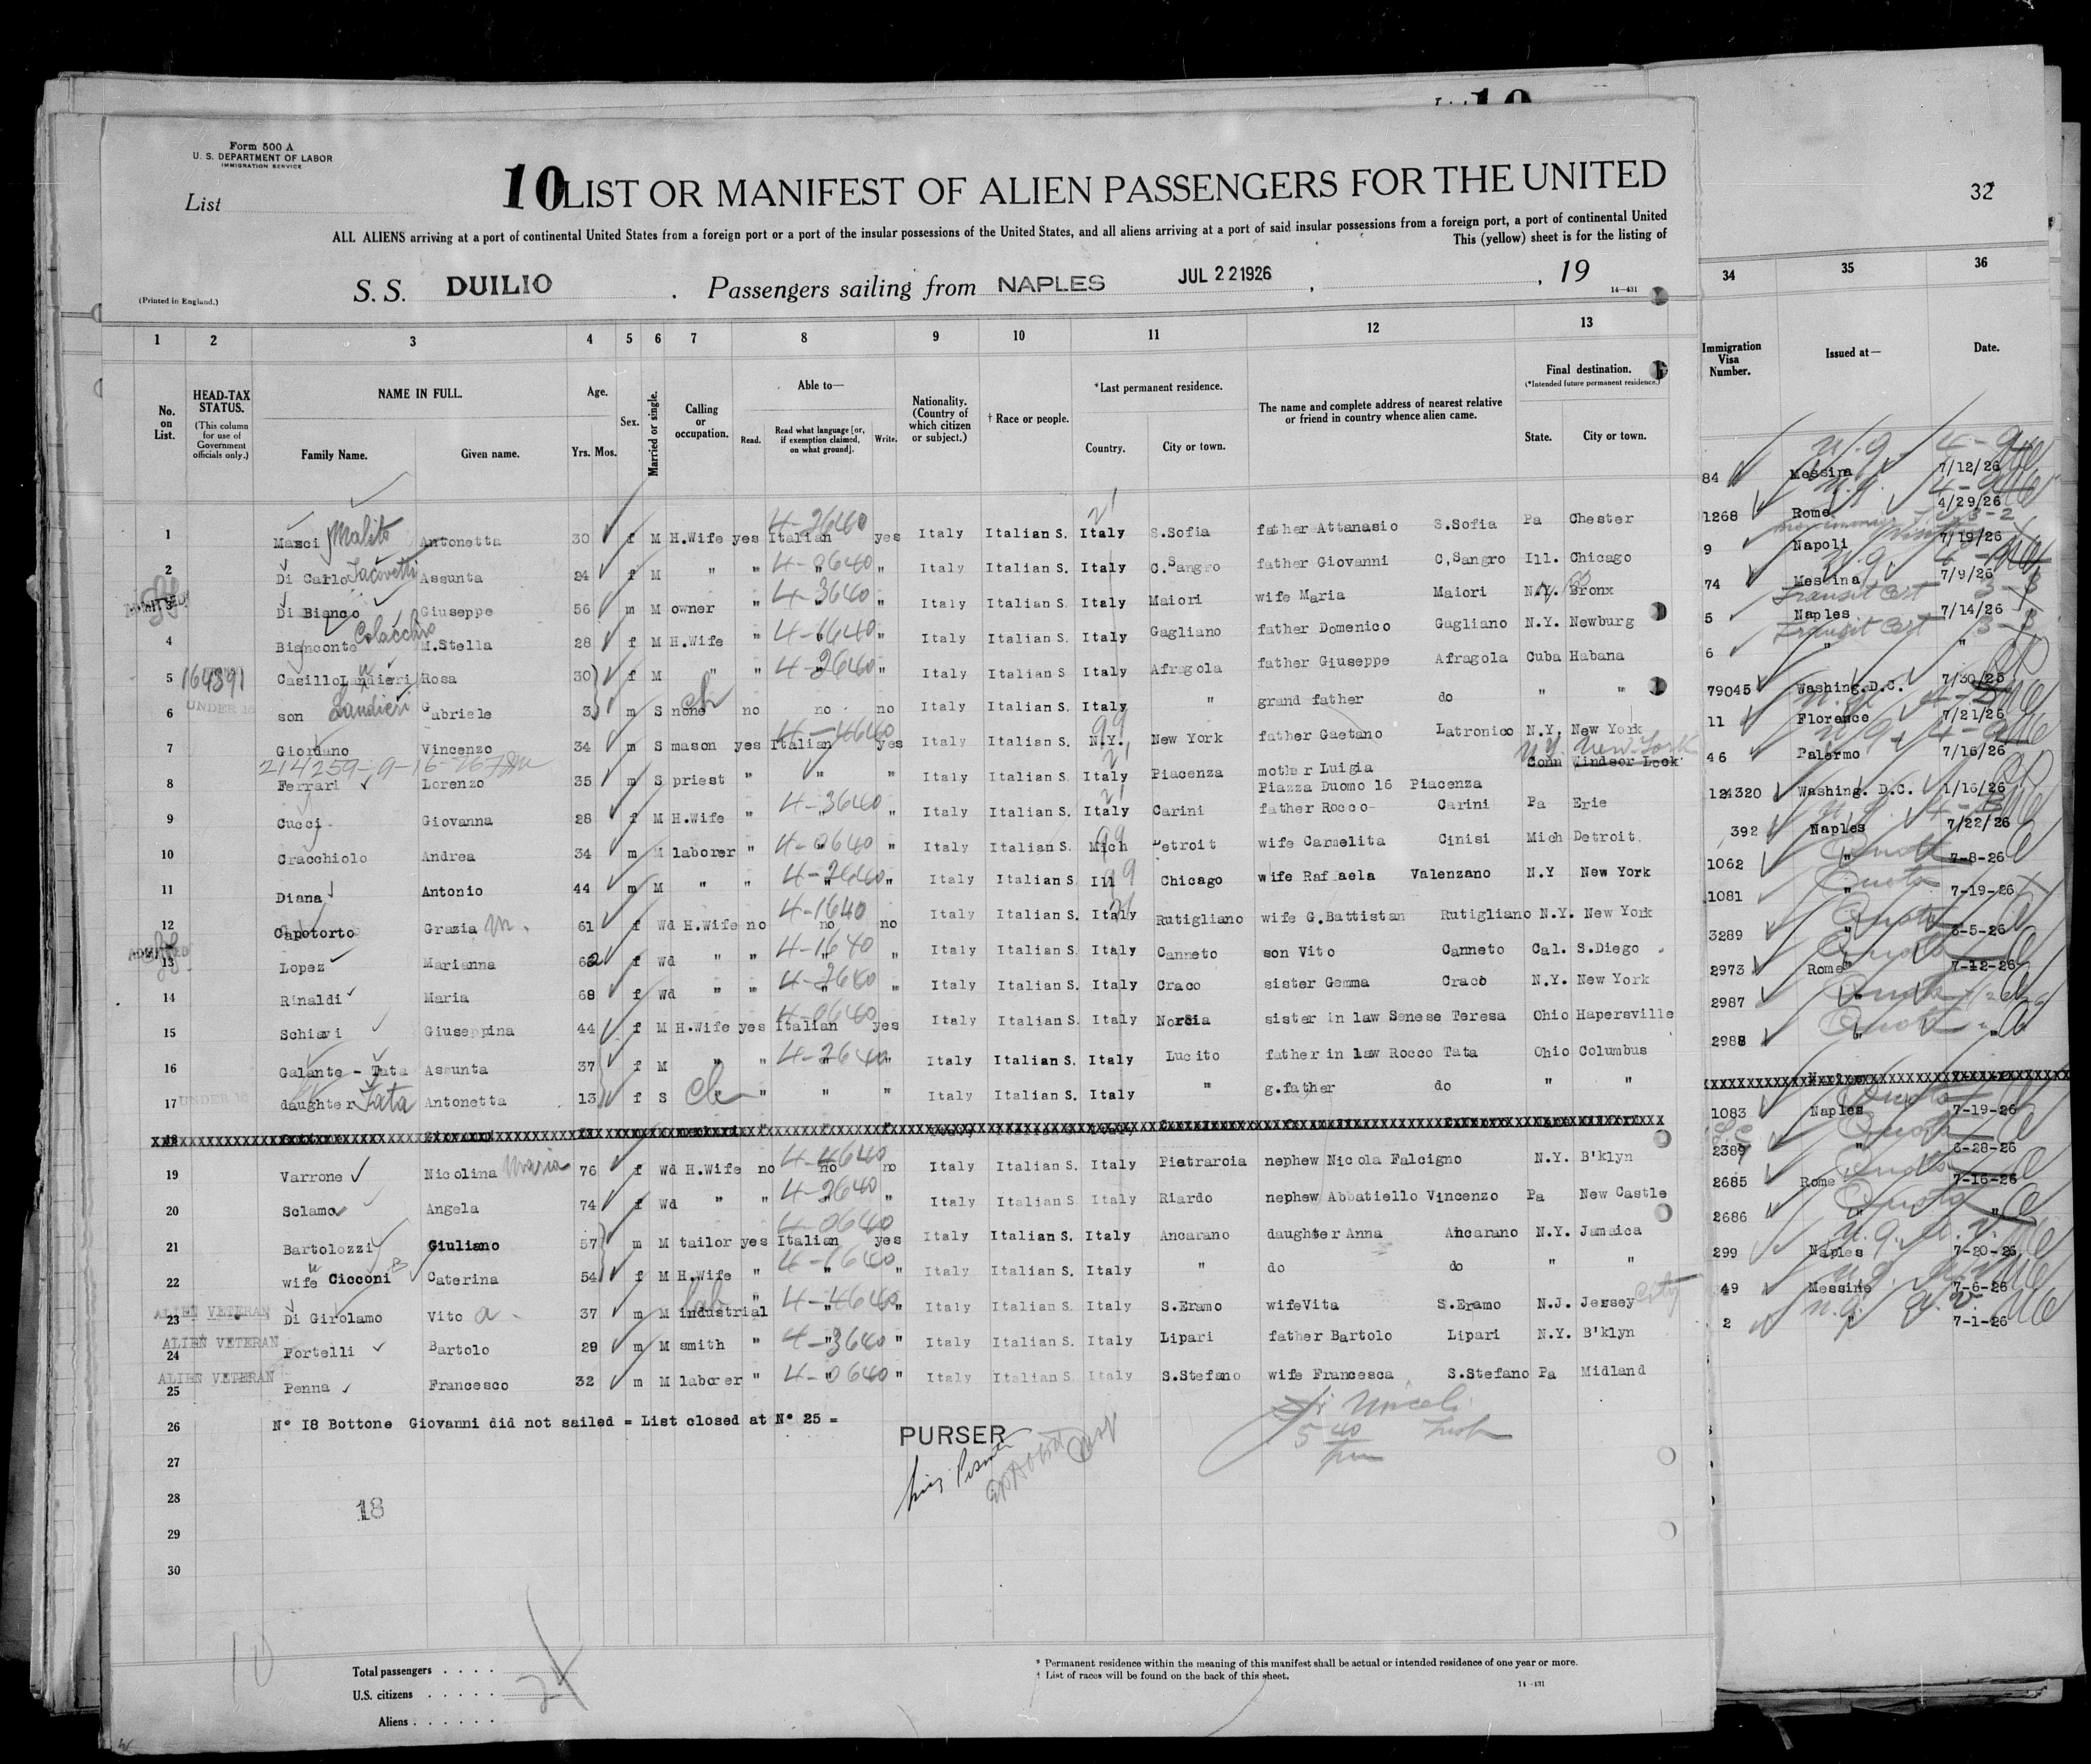 10
32
Form 500 A
U. S. DEPARTMENT OF LABOR
IMMIGRATION SERVICE
List
10 LIST OR MANIFEST OF ALIEN PASSENGERS FOR THE UNITED
ALL ALIENS arriving at a port of continental United States from a foreign port or a port of the insular possessions of the United States, and all aliens arriving at a port of said insular possessions from a foreign port, a port of continental United
This (yellow) sheet is for the listing of
(Printed in England.)
S. S. DUILIO . Passengers sailing from NAPLES JUL 22 1926 , , 19
14-431
1 2 3 4 5 6 7 8 9 10 11 12 13 34 35 36
No. on List.
HEAD-TAX STATUS.
(This column for use of Government officials only.)
NAME IN FULL.
Family Name. Given name.
Age.
Yrs. Mos.
Sex.
Married or single.
Calling or occupation.
Able to—
Read. Read what language [or, if exemption claimed, on what ground]. Write.
Nationality. (Country of which citizen or subject.)
† Race or people.
*Last permanent residence.
Country. City or town.
The name and complete address of nearest relative or friend in country whence alien came.
Final destination.
(*Intended future permanent residence.)
State. City or town.
Immigration Visa Number.
Issued at—
Date.
1 Masci Malito Antonetta 30 f M H.Wife yes Italian 4-2640 yes Italy Italian S. Italy S.Sofia father Attanasio S.Sofia Pa Chester
2 Di Carlo Iacovetti Assunta 24 f M " " " 4-0640 " Italy Italian S. Italy C.Sangro father Giovanni C,Sangro Ill. Chicago
ADMITTED 3 Di Bianco Giuseppe 56 m M owner " " 4-3640 " Italy Italian S. Italy Maiori wife Maria Maiori N.Y. Bronx
4 Bianconte Colacchio M.Stella 28 f M H.Wife " " 4-1640 " Italy Italian S. Italy Gagliano father Domenico Gagliano N.Y. Newburg
5 164391 Casillo Landieri Rosa 30 f M " " " 4-2640 " Italy Italian S. Italy Afragola father Giuseppe Afragola Cuba Habana
6 UNDER 16 son Landieri Gabriele 3 m S none ch no no no Italy Italian S. Italy " grand father do " "
7 Giordano Vincenzo 34 m S mason yes Italian 4-4640 yes Italy Italian S. N.Y. 99 New York father Gaetano Latronico N.Y. New York
214259-9-16-26
8 Ferrari Lorenzo 35 m S priest " " " Italy Italian S. Italy Piacenza mother Luigia Piazza Duomo 16 Piacenza Conn Windsor Lock N.Y. New York
9 Cucci Giovanna 28 f M H.Wife " 4-3640 " Italy Italian S. Italy Carini father Rocco- Carini Pa Erie
10 Cracchiolo Andrea 34 m M laborer " " 4-0640 " Italy Italian S. Mich 99 Detroit wife Carmelita Cinisi Mich Detroit.
11 Diana Antonio 44 m M " " " 4-2640 " Italy Italian S Ill 99 Chicago wife Raffaela Valenzano N.Y New York
12 Capotorto Grazia m. 61 f Wd H.Wife no no 4-1640 no Italy Italian S. Italy Rutigliano wife G.Battistan Rutigliano N.Y. New York
ADMITTED 13 Lopez Marianna 62 f Wd " " " 4-1640 " Italy Italian S. Italy Canneto son Vito Canneto Cal. S.Diego
14 Rinaldi Maria 68 f Wd " " " 4-2640 " Italy Italian S. Italy Craco sister Gemma Craco N.Y. New York
15 Schiavi Giuseppina 44 f M H.Wife yes Italian 4-0640 yes Italy Italian S. Italy Norcia sister in law Senese Teresa Ohio Hapersville
16 Galante - Tata Assunta 37 f M " " " 4-2640 " Italy Italian S. Italy Lucito father in law Rocco Tata Ohio Columbus
17 UNDER 16 daughter Tata Antonetta 13 f S ch " " " " Italy Italian S. Italy " g.father do " "
19 Varrone Nicolina Maria 76 f Wd H.Wife no no 4-4640 no Italy Italian S. Italy Pietraroia nephew Nicola Falcigno N.Y. B'klyn
20 Sclamo Angela 74 f Wd " " " 4-2640 " Italy Italian S. Italy Riardo nephew Abbatiello Vincenzo Pa New Castle
21 Bartolozzi Giuliano 57 m M tailor yes Italian 4-0640 yes Italy Italian S. Italy Ancarano daughter Anna Ancarano N.Y. Jamaica
22 wife Cicconi B Caterina 54 f M H.Wife " " 4-1640 " Italy Italian S. Italy " do do " "
ALIEN VETERAN 23 Di Girolamo Vito a. 37 m M industrial lab " " 4-4640 " Italy Italian S. Italy S.Eramo wifeVita S.Eramo N.J. Jersey City
ALIEN VETERAN 24 Portelli Bartolo 29 m M smith " " 4-3640 " Italy Italian S. Italy Lipari father Bartolo Lipari N.Y. B'klyn
ALIEN VETERAN 25 Penna Francesco 32 m M laborer " " 4-0640 " Italy Italian S. Italy S.Stefano wife Francesca S.Stefano Pa Midland
26 N° 18 Bottone Giovanni did not sailed = List closed at N° 25 =
PURSER
27
28
18
29
30
10
84 Messina 7/12/26
4/29/26
1268 Rome
9 Napoli 7/19/26
74 Messina 7/9/26
Transit Cert
5 Naples 7/14/26
Transit Cert
6 " "
79045 Washing.D.C. 7/30/25
11 Florence 7/21/26
46 Palermo 7/16/26
124320 Washing. D.C. 1/16/26
392 Naples 7/22/26
1062 " Quota 7-8-26
1081 " Quota 7-19-26
3289 " Quota 6-5-26
2973 Rome Quota 7-12-26
2987 " Quota
2988 " Quota "
1083 Naples Quota 7-19-26
2389 " Quota 6-28-26
2685 Rome Quota 7-16-26
2686 " Quota "
299 Naples 7-20-26
49 Messina 7-6-26
2 " 7-1-26
Total passengers . . . .
U.S. citizens . . . . . 24
Aliens . . . . . .
* Permanent residence within the meaning of this manifest shall be actual or intended residence of one year or more.
† List of races will be found on the back of this sheet.
14-431